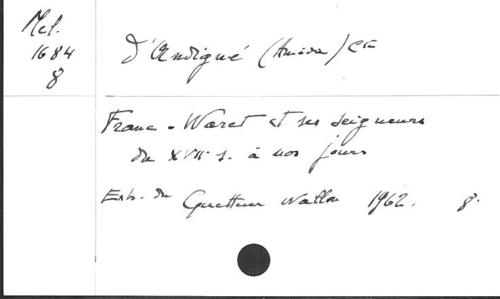 Mel.
1684
8
D'Andigné (Amédée) Cte
Franc-Waret et ses seigneurs
du XVII s. à nos jours
Extr. du Guetteur Wallon 1962. 8.